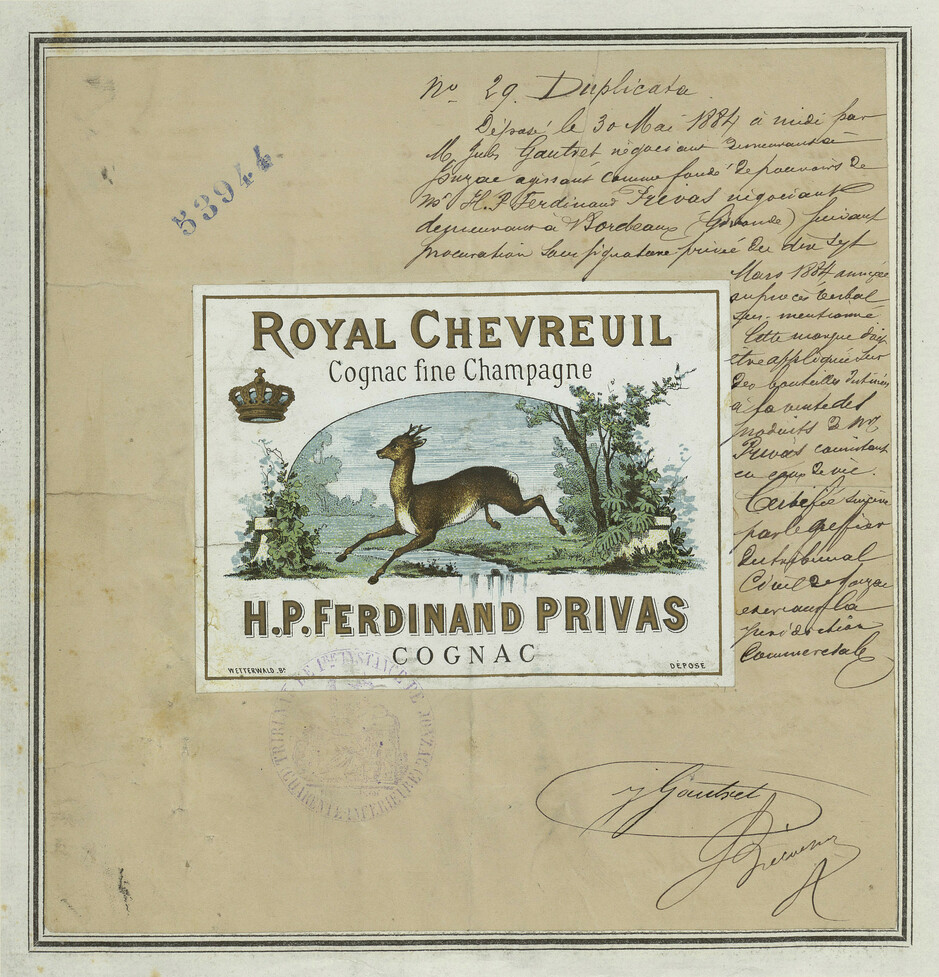 No 29. Duplicata
Déposé le 30 Mai 1884 à midi par
M. Jules Gautret négociant demeurant à
Jonzac agissant comme fondé de pouvoirs de
Mr H. P. Ferdinand Privas négociant
demeurant à Bordeaux (Gironde) suivant
procuration sous signature privée du dix sept
Mars 1884 annexée
au procès verbal
sus-mentionné
Cette marque doit
être appliquée sur
des bouteilles destinées
à la vente des
produits de Mr
Privas consistant
en eaux de vie.
Certifiée sincère
par le greffier
du tribunal
Civil de Jonzac
exerçant la
juridiction
Commerciale
53944
ROYAL CHEVREUIL
Cognac fine Champagne
H.P. FERDINAND PRIVAS
COGNAC
WETTERWALD. Bx
DÉPOSÉ
TRIBUNAL DE 1re INSTANCE DE JONZAC
(CHARENTE INFÉRIEURE)
J Gautret